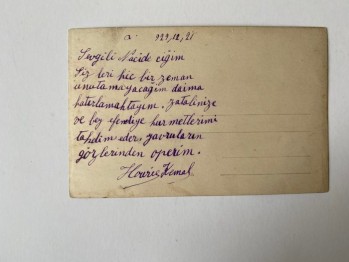 929,12,21
Sevgili Nacide ciğim
Siz leri hiç bir zeman
unutamayacağım daima
hatırlamaktayım. zatalinize
ve bey efendiye hürmetlerimi
takdim eder, yavruların
gözlerinden öperim.
Kemal